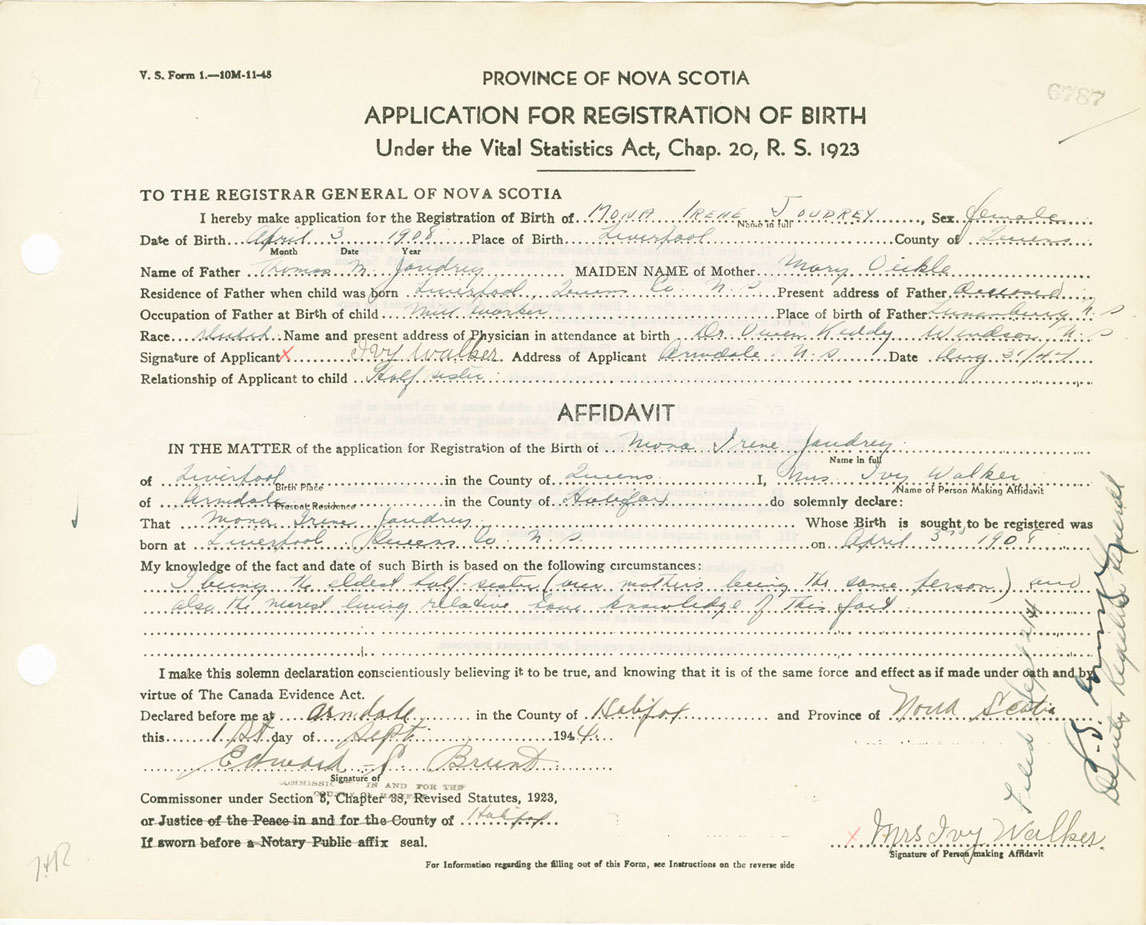 V. S. Form 1.—10M-11-43
PROVINCE OF NOVA SCOTIA
6787
APPLICATION FOR REGISTRATION OF BIRTH
Under the Vital Statistics Act, Chap. 20, R. S. 1923
TO THE REGISTRAR GENERAL OF NOVA SCOTIA
I hereby make application for the Registration of Birth of MONA IRENE JOUDREY, Sex female
Name in full
Date of Birth April 3 1908 Place of Birth Liverpool County of Queens
Month Date Year
Name of Father Thomas M. Joudrey MAIDEN NAME of Mother Mary Oickle
Residence of Father when child was born Liverpool, Queens Co. N. S Present address of Father Deceased
Occupation of Father at Birth of child Mill Worker Place of birth of Father Lunenburg N. S
Race Name and present address of Physician in attendance at birth Dr. Owen Keddy Windsor N. S
Signature of Applicant x Ivy Walker Address of Applicant Armdale N. S Date Aug 31/44
Relationship of Applicant to child Half sister
AFFIDAVIT
IN THE MATTER of the application for Registration of the Birth of Mona Irene Joudrey
Name in full
of Liverpool in the County of Queens I, Mrs. Ivy Walker
Birth Place Name of Person Making Affidavit
of Armdale in the County of Halifax do solemnly declare:
Present Residence
That Mona Irene Joudrey Whose Birth is sought to be registered was
born at Liverpool Queens Co. N. S. on April 3rd 1908
My knowledge of the fact and date of such Birth is based on the following circumstances:
I being the eldest half-sister (our mothers being the same person) and
also the nearest living relative have knowledge of this fact.
I make this solemn declaration conscientiously believing it to be true, and knowing that it is of the same force and effect as if made under oath and by
virtue of The Canada Evidence Act.
Declared before me at Armdale in the County of Halifax and Province of Nova Scotia
this 1st day of Sept. 1944
Edward S. Brunt
Signature of
COMMISSIONER IN AND FOR THE
COUNTY OF HALIFAX
Commissoner under Section 5, Chapter 38, Revised Statutes, 1923,
or Justice of the Peace in and for the County of Halifax
If sworn before a Notary Public affix seal.
x Mrs Ivy Walker.
Signature of Person making Affidavit
For Information regarding the filling out of this Form, see Instructions on the reverse side
Filed Sept 2/44
Deputy Registrar General